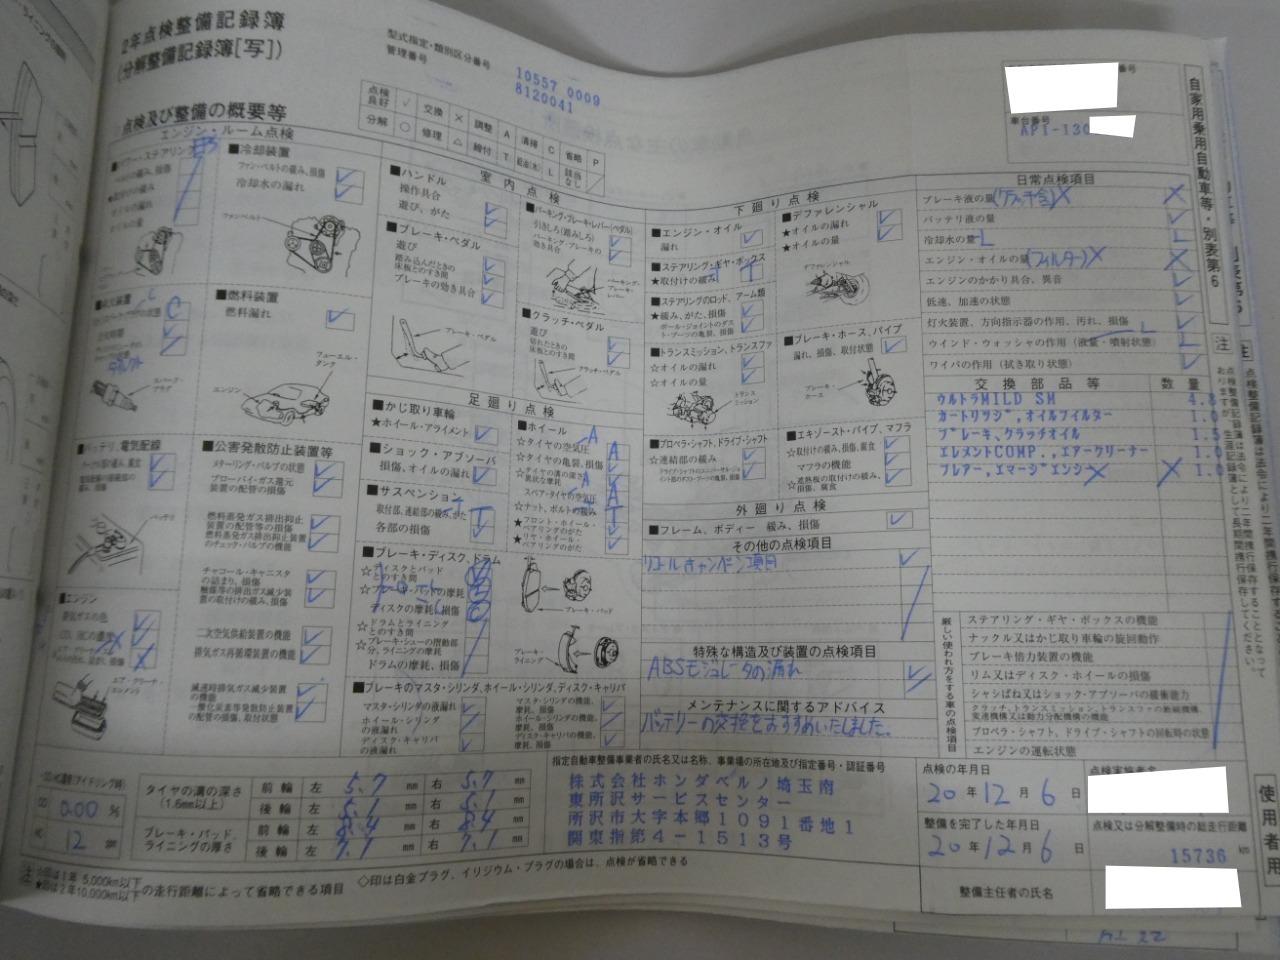 2年点検整備記録簿
(分解整備記録簿[写])
型式指定・類別区分番号
10557 0009
管理番号
8120041
点検及び整備の概要等
点検良好 ✓ 交換 × 調整 A 清掃 C 省略 P
分解 ○ 修理 △ 締付 T 給油(水) L 該当なし /
車台番号
AP1-130
自家用乗用自動車等・別表第6
エンジン・ルーム点検
■冷却装置
ファン・ベルトの緩み、損傷
冷却水の漏れ
ファン・ベルト
■燃料装置
燃料漏れ
フューエル・タンク
エンジン
スパーク・プラグ
バッテリ、電気配線
バッテリ
■エンジン
排気ガスの色
CO、HCの濃度
エア・クリーナ・エレメント
■公害発散防止装置等
メターリング・バルブの状態
ブローバイ・ガス還元装置の配管の損傷
燃料蒸発ガス排出抑止装置の配管等の損傷
燃料蒸発ガス排出抑止装置のチェック・バルブの機能
チャコール・キャニスタの詰まり、損傷
触媒等の排出ガス減少装置の取付けの緩み、損傷
二次空気供給装置の機能
排気ガス再循環装置の機能
減速時排気ガス減少装置の機能
一酸化炭素等発散防止装置の配管の損傷、取付状態
室内点検
■ハンドル
操作具合
遊び、がた
■ブレーキ・ペダル
遊び
踏み込んだときの床板とのすき間
ブレーキの効き具合
ブレーキ・ペダル
■パーキング・ブレーキ・レバー(ペダル)
引きしろ(踏みしろ)
パーキング・ブレーキの効き具合
パーキング・ブレーキ・レバー
■クラッチ・ペダル
遊び
切れたときの床板とのすき間
クラッチ・ペダル
足廻り点検
■かじ取り車輪
★ホイール・アライメント
■ショック・アブソーバ
損傷、オイルの漏れ
■サスペンション
取付部、連結部の緩み、がた T
各部の損傷
■ブレーキ・ディスク、ドラム
☆ディスクとパッドとのすき間
☆ブレーキ・パッドの摩耗
ディスクの摩耗、損傷
☆ドラムとライニングとのすき間
☆ブレーキ・シューの摺動部分、ライニングの摩耗
ドラムの摩耗、損傷
■ホイール
☆タイヤの空気圧 A
☆タイヤの亀裂、損傷
☆タイヤの溝の深さ、異状な摩耗
スペア・タイヤの空気圧 A
☆ナット、ボルトの緩み T
★フロント・ホイール・ベアリングのがた
★リヤ・ホイール・ベアリングのがた
ブレーキ・パッド
ブレーキ・ライニング
■ブレーキのマスタ・シリンダ、ホイール・シリンダ、ディスク・キャリパ
マスタ・シリンダの液漏れ
ホイール・シリンダの液漏れ
ディスク・キャリパの液漏れ
マスタ・シリンダの機能、摩耗、損傷
ホイール・シリンダの機能、摩耗、損傷
ディスク・キャリパの機能、摩耗、損傷
下廻り点検
■エンジン・オイル
漏れ
■ステアリング・ギヤ・ボックス
★取付けの緩み T
■ステアリングのロッド、アーム類
★緩み、がた、損傷
ボール・ジョイントのダスト・ブーツの亀裂、損傷
■トランスミッション、トランスファ
☆オイルの漏れ
☆オイルの量
トランスミッション
■プロペラ・シャフト、ドライブ・シャフト
☆連結部の緩み
ドライブ・シャフトのユニバーサル・ジョイント部のダスト・ブーツの亀裂、損傷
■デファレンシャル
★オイルの漏れ
★オイルの量
デファレンシャル
■ブレーキ・ホース、パイプ
漏れ、損傷、取付状態
ブレーキ・ホース
■エキゾースト・パイプ、マフラ
☆取付けの緩み、損傷、腐食
マフラの機能
☆遮熱板の取付けの緩み、損傷、腐食
外廻り点検
■フレーム、ボディー 緩み、損傷
その他の点検項目
リコールキャンペーン項目
特殊な構造及び装置の点検項目
ABSモジュレータの漏れ
メンテナンスに関するアドバイス
バッテリーの交換をおすすめいたしました。
日常点検項目
ブレーキ液の量(クラッチ含)X ×
バッテリ液の量
冷却水の量 L L
エンジン・オイルの量(フィルター)X ×
エンジンのかかり具合、異音
低速、加速の状態
灯火装置、方向指示器の作用、汚れ、損傷
ウインド・ウォッシャの作用(液量・噴射状態) L L
ワイパの作用(拭き取り状態)
交換部品等 数量
ウルトラMILD SM 4.8
カートリッジ,オイルフィルター 1.0
ブレーキ、クラッチオイル 1.5
エレメントCOMP.,エアークリーナー 1.0
フレアー,エマージエンシ 1.0
厳しい使われ方をする車の点検項目
ステアリング・ギヤ・ボックスの機能
ナックル又はかじ取り車輪の旋回動作
ブレーキ倍力装置の機能
リム又はディスク・ホイールの損傷
シャシばね又はショック・アブソーバの緩衝能力
クラッチ、トランスミッション、トランスファの断続機構、変速機構又は動力分配機構の機能
プロペラ・シャフト、ドライブ・シャフトの回転時の状態
エンジンの運転状態
CO 0.00 %
HC 12 ppm
タイヤの溝の深さ(1.6mm以上)
前輪 左 5.7 mm 右 5.7 mm
後輪 左 5.1 mm 右 5.1 mm
ブレーキ・パッド、ライニングの厚さ
前輪 左 8.4 mm 右 8.4 mm
後輪 左 7.1 mm 右 7.1 mm
指定自動車整備事業者の氏名又は名称、事業場の所在地及び指定番号・認証番号
株式会社ホンダベルノ埼玉南
東所沢サービスセンター
所沢市大字本郷1091番地1
関東指第4-1513号
点検の年月日
20年12月6日
整備を完了した年月日
20年12月6日
点検実施者名
点検又は分解整備時の総走行距離
15736 km
整備主任者の氏名
使用者用
注 ☆印は1年 5,000km以下
★印は2年10,000km以下 の走行距離によって省略できる項目
◇印は白金プラグ、イリジウム・プラグの場合は、点検が省略できる